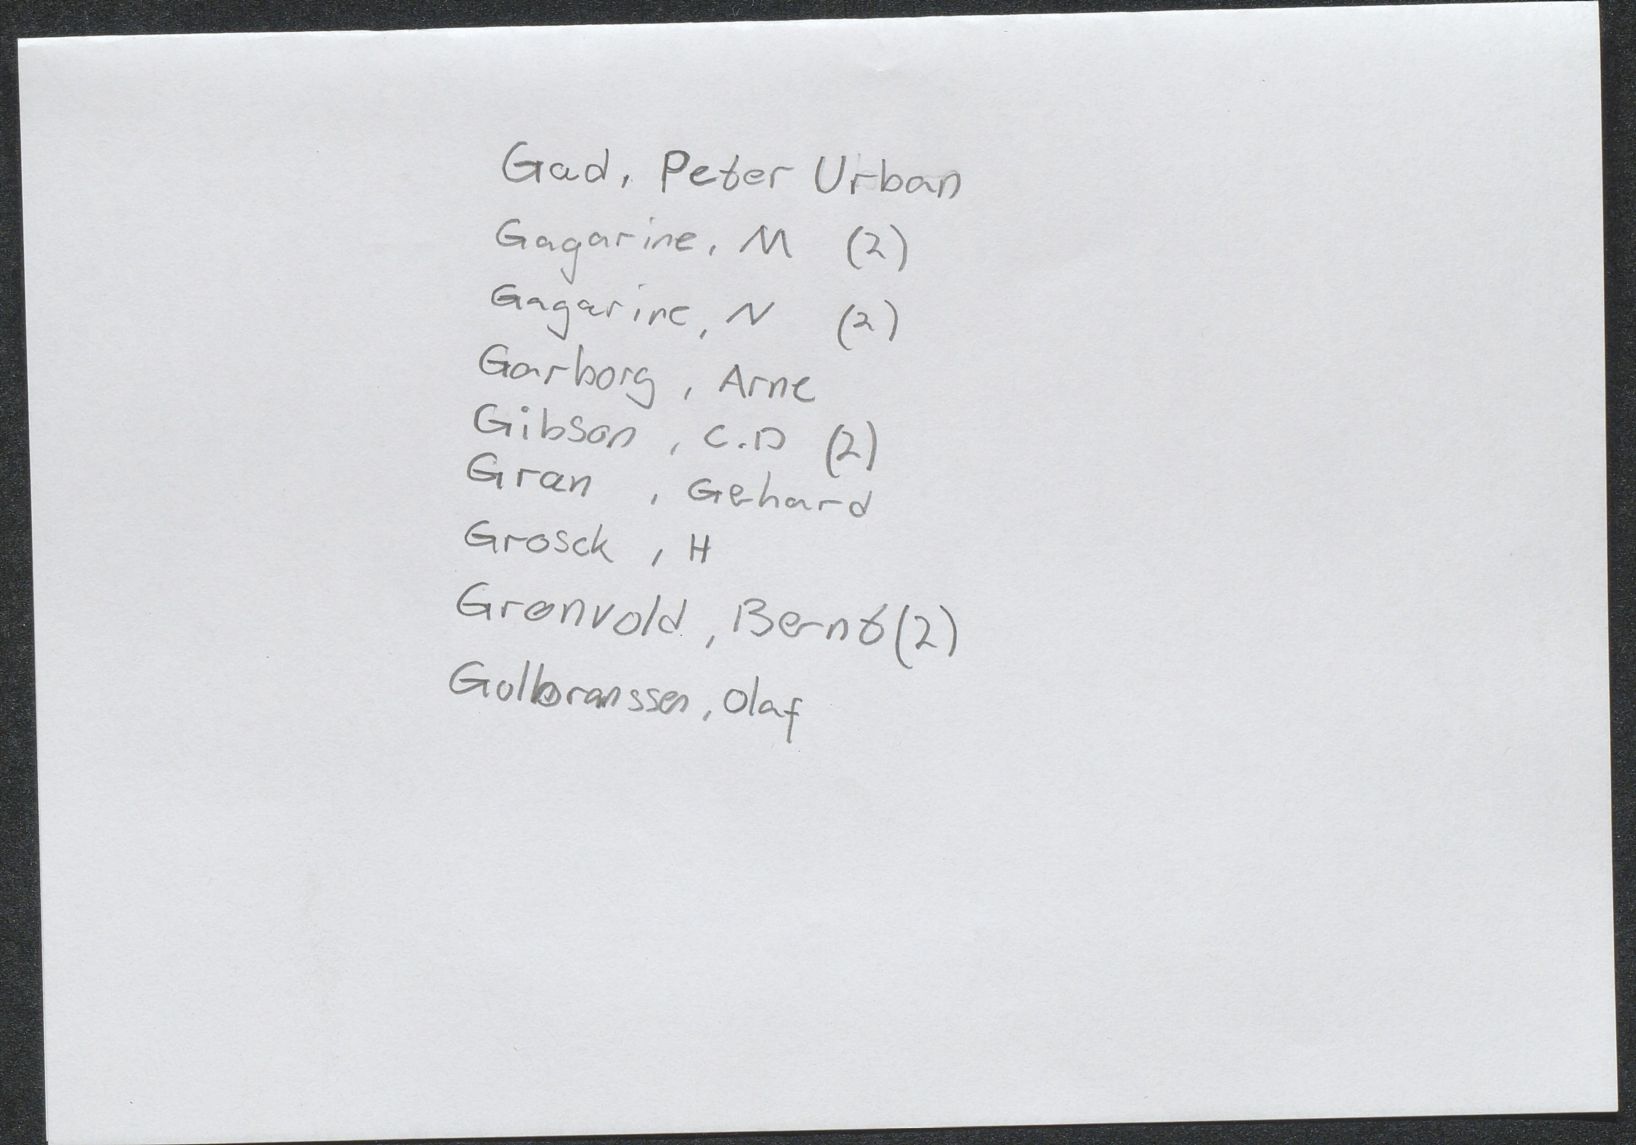 Gad, Peter Urban
Gagarine, M (2)
Gagarine, N (2)
Garborg, Arne
Gibson, C.D (2)
Gran, Gehard
Grosck, H
Grønvold, Bernt (2)
Gulbranssen, Olaf